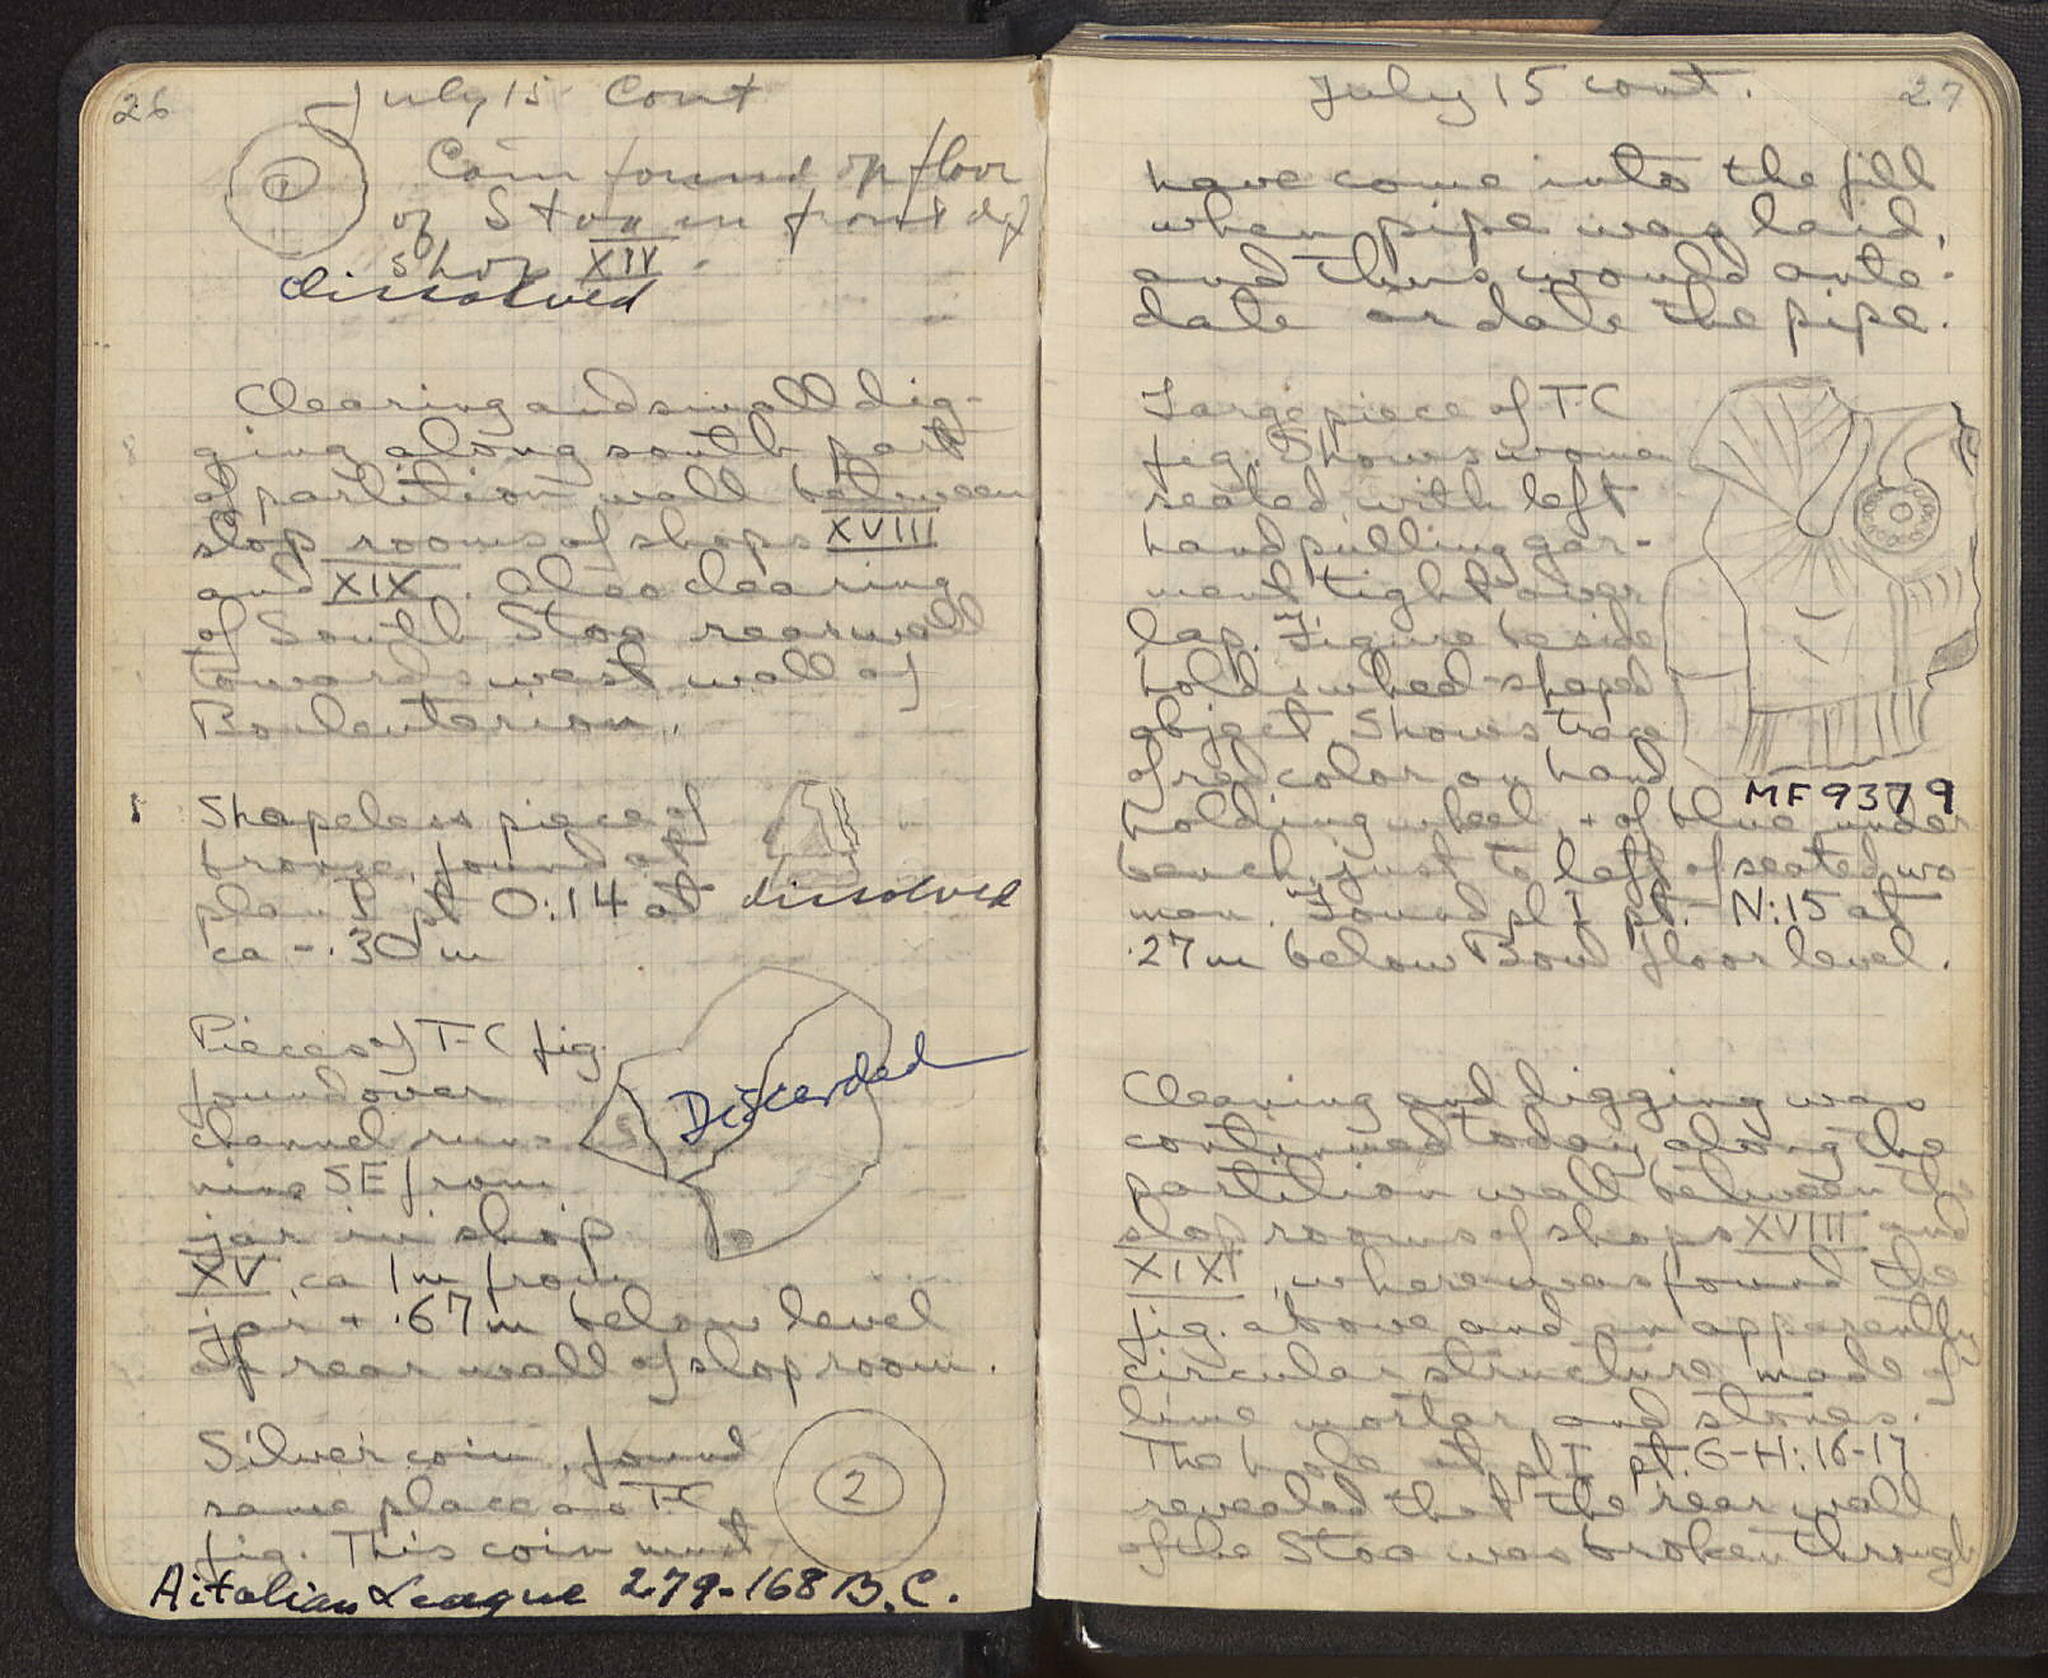 26
July 15 Cont
1
Coin found on floor
of Stoa in front of
shop XIV.
dissolved
Clearing and small dig-
ging along south part
of partition wall between
slop rooms of shops XVIII
and XIX. Also clearing
of South Stoa rear wall
towards west wall of
Bouleuterion.
Shapeless piece of
bronze, found at
plan I pt O:14 at
ca -.30 m
dissolved
Pieces of T-C fig.
found over
channel run-
ning SE from
jar in shop
XV, ca 1m from
jar + .67m below level
of rear wall of slop room.
Discarded
Silver coin, found
same place as T-C
fig. This coin must
2
Aitolian League 279-168 B.C.
July 15 cont.
27
have come into the fill
when pipe was laid,
and thus would ante-
date or date the pipe.
Large piece of T-C
fig. Shows woman
seated, with left
hand pulling gar-
ment tight over
lap. Figure beside
holds wheel-shaped
object. Shows trace
of red color on hand
MF 9379
holding wheel, + of blue under
bench, just to left of seated wo-
man. Found pl I pt. N:15 at
.27m below Boul floor level.
Cleaning and digging was
continued today along the
partition wall between the
slop rooms of shops XVIII and
XIX, where was found the
fig. above and an apparently
circular structure made of
lime mortar and stones.
The hole at pl I pt. G-H:16-17
revealed that the rear wall
of the Stoa was broken through